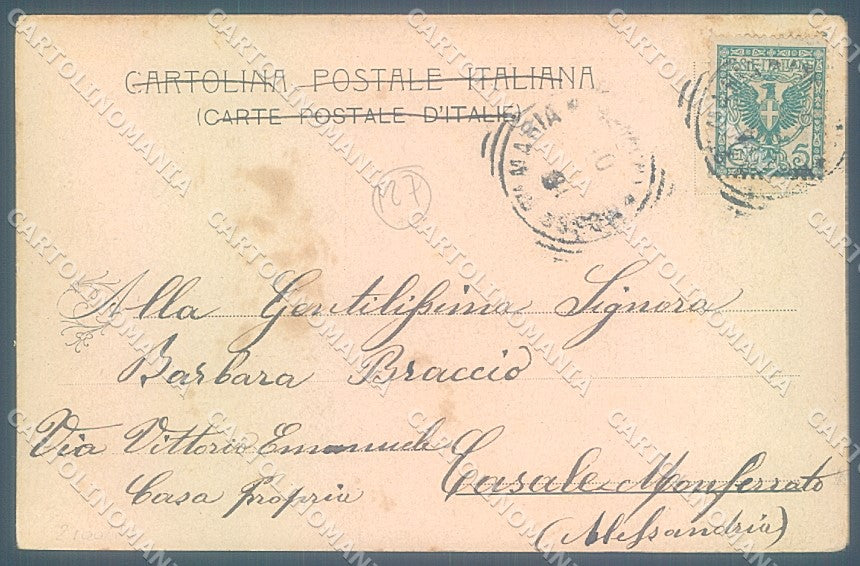 CARTOLINA POSTALE ITALIANA
(CARTE POSTALE D'ITALIE)
POSTE ITALIANE
CENT. 5
MARIA
127
Alla Gentilissima Signora
Barbara Braccio
Via Vittorio Emanuele
Casa Propria
Casale Monferrato
(Alessandria)
2100
CARTOLINOMANIA